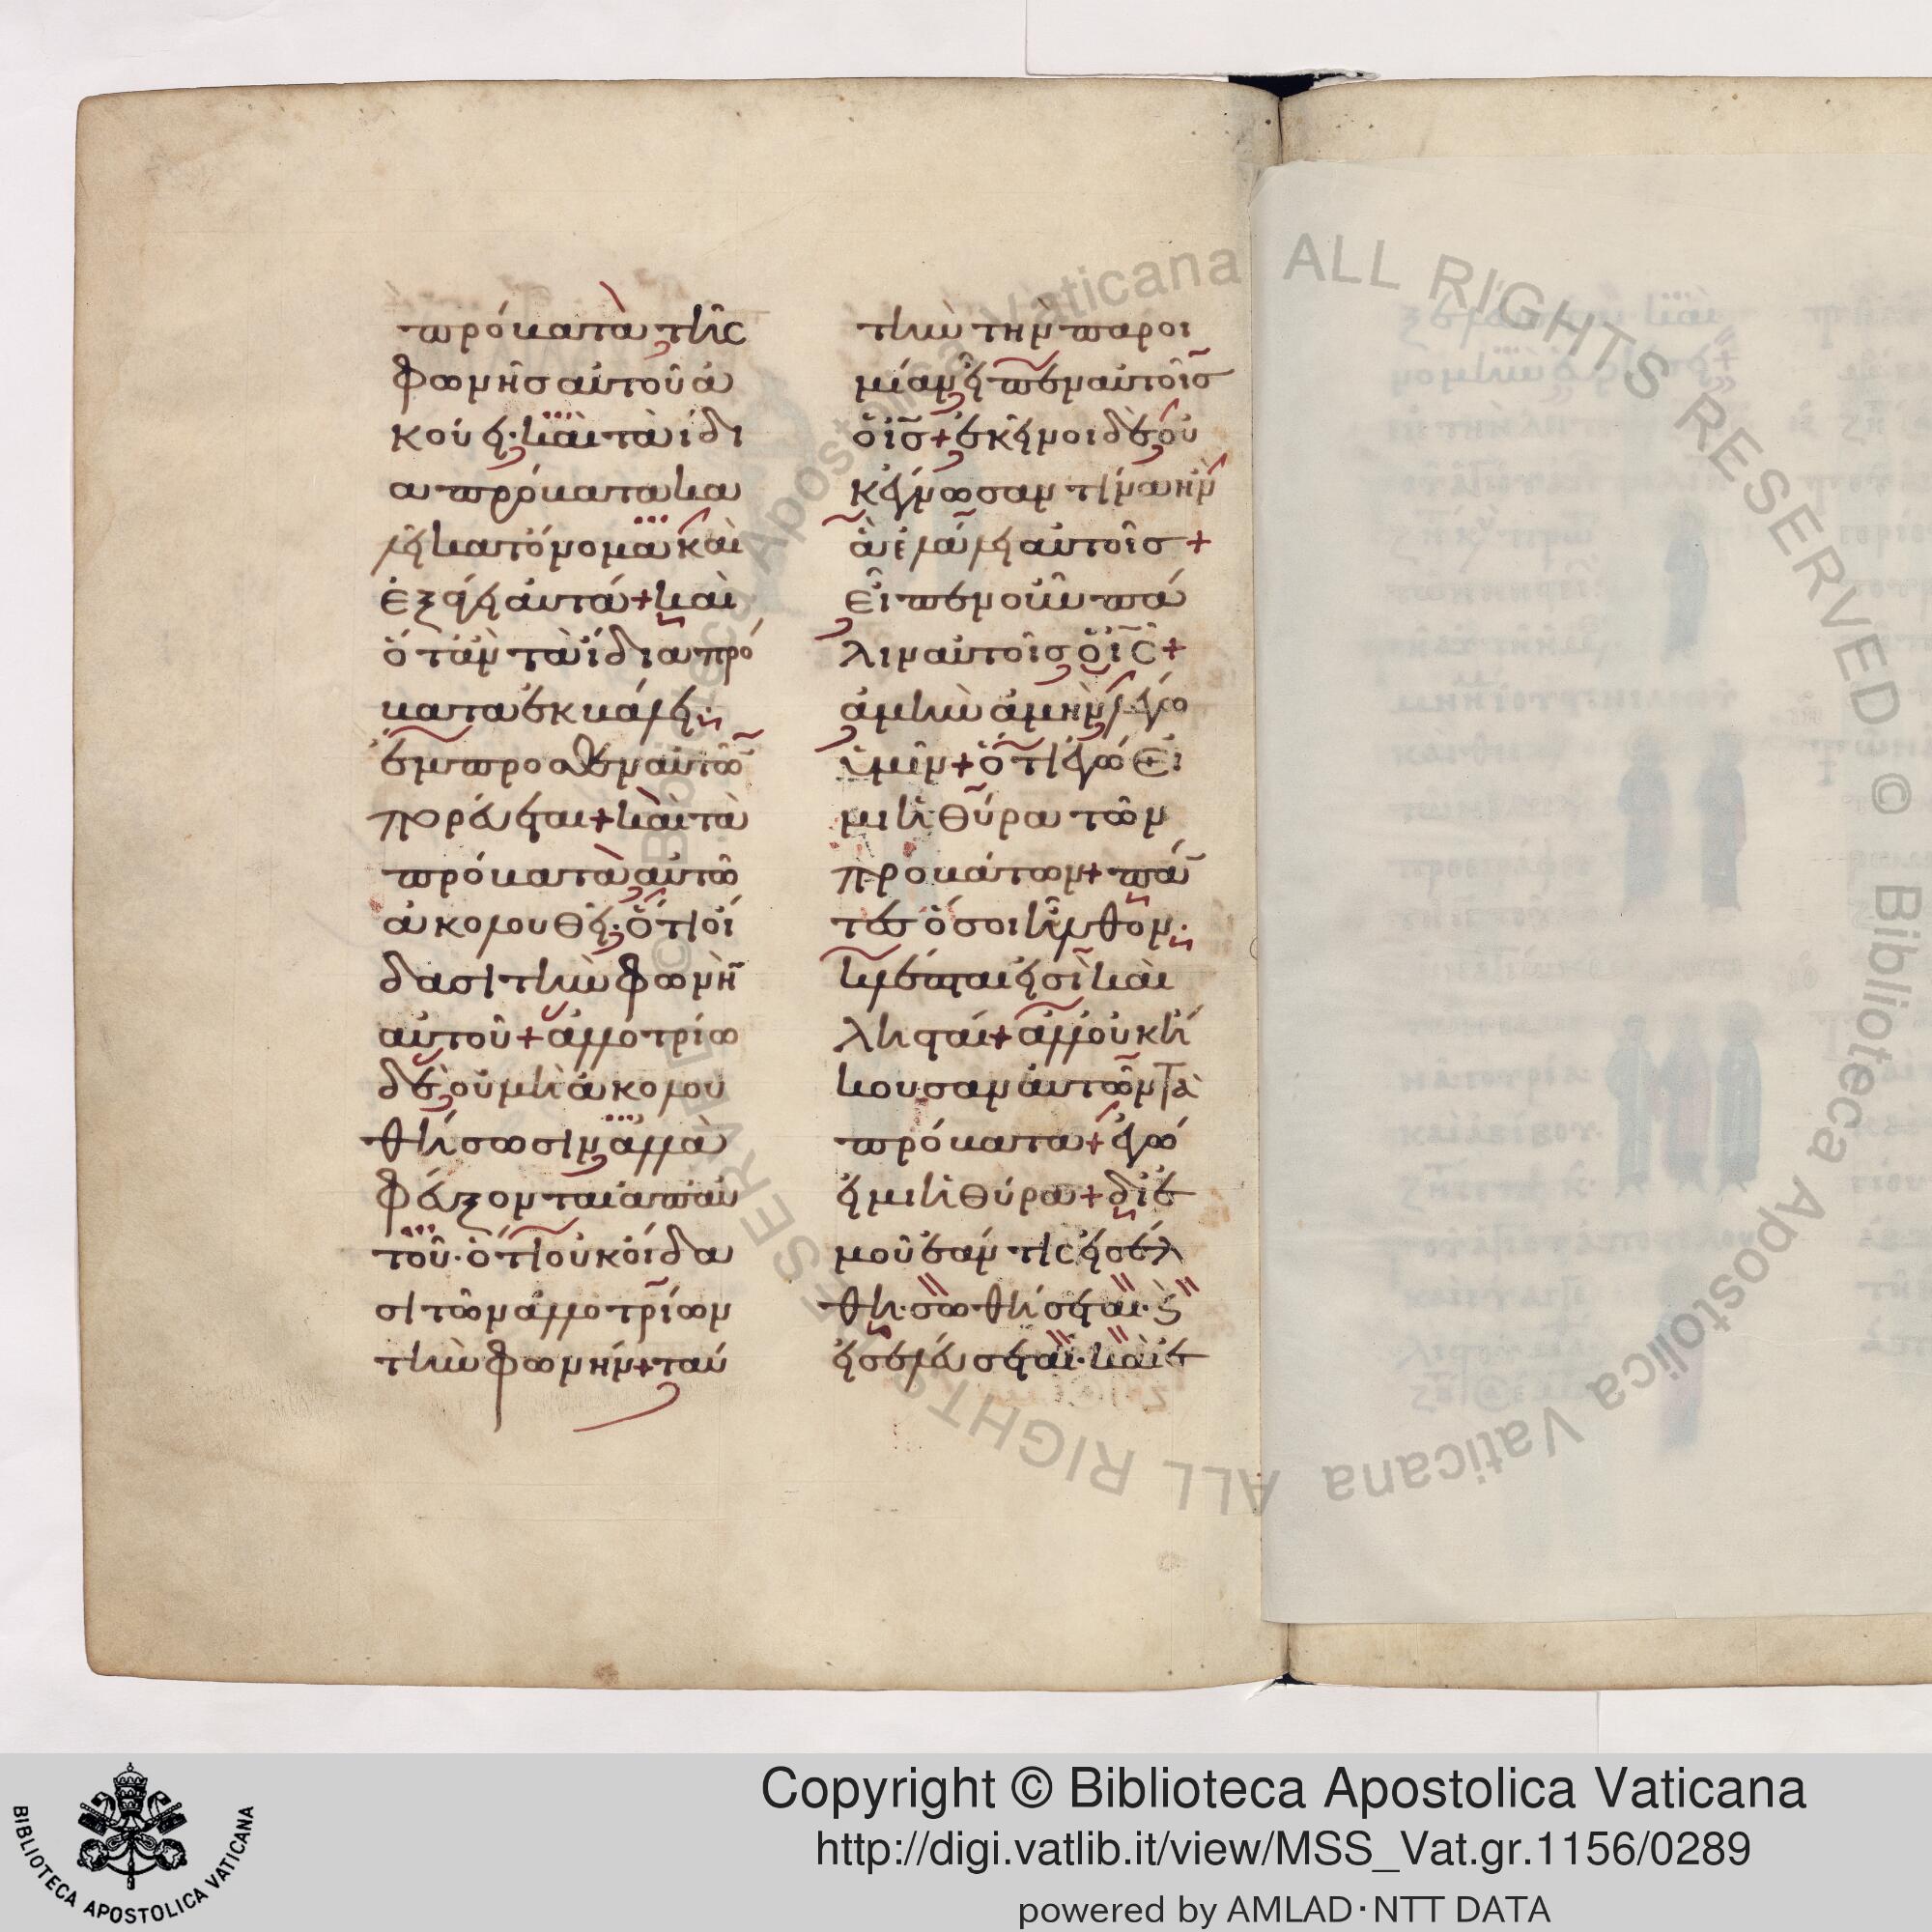 πρόβατα τῆς
φωνῆς αὐτοῦ ἀ
κούει· καὶ τὰ ἴδι
α πρόβατα κα
λεῖ κατόνομα καὶ
ἐξάγει αὐτά + καὶ
ὅταν τὰ ἴδια πρό
βατα ἐκβάλῃ·
ἔμπροσθεν αὐτῶ
πορεύεται + καὶ τὰ
πρόβατα αὐτῶ
ἀκολουθεῖ· ὅτι οἴ
δασι τὴν φωνὴ
αὐτοῦ + ἀλλοτρίω
δὲ οὐ μὴ ἀκολου
θήσωσιν ἀλλὰ
φεύξονται ἀπ αὐ
τοῦ· ὅτι οὐκ οἴδα
σι τῶν ἀλλοτρίων
τὴν φωνήν + ταύ
τὴν τὴν παροι
μίαν εἶπεν αὐτοῖσ
ὁ ισ + ἐκεῖνοι δὲ οὐ
κ ἔγνωσαν τίνα ἦν
ἃ ἐλάλει αὐτοῖσ +
εἶπεν οὖν πά
λιν αὐτοῖσ ὁ ις +
ἀμὴν ἀμὴν λέγω
ὑμῖν + ὅτι ἐγώ εἰ
μι ἡ θύρα τῶν
προβάτων + πά
τες ὅσοι ἦλθον·
κλέπται εἰσὶ καὶ
λῃσταί + ἀλλ οὐκ ἤ
κουσαν αὐτῶν τὰ
πρόβατα + ἐγώ
εἰμι ἡ θύρα + δι ἐ
μοῦ ἐάν τις εἰσέλ
θῃ· σωθήσεται· καὶ
εἰσελεύσεται· καὶ ἐ
ALL RIGHTS RESERVED © Biblioteca Apostolica Vaticana
ALL RIGHTS RESERVED © Biblioteca Apostolica Vaticana
BIBLIOTECA APOSTOLICA VATICANA
Copyright © Biblioteca Apostolica Vaticana
http://digi.vatlib.it/view/MSS_Vat.gr.1156/0289
powered by AMLAD·NTT DATA